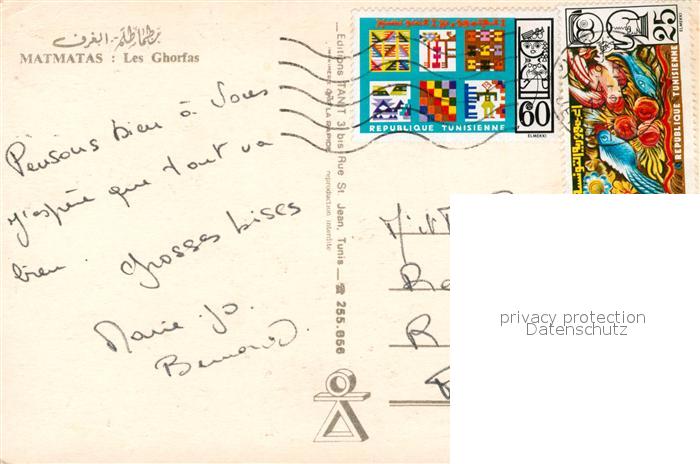 MATMATAS : Les Ghorfas
Pensons bien à Vous
j'espère que tout va
bien. grosses bises
Marie-Jo.
Bernard
Editions TANIT 3 bis Rue St. Jean, Tunis — ☎ 255.656
reproduction interdite
REPUBLIQUE TUNISIENNE
60
ELMEKKI
25
ELMEKKI
REPUBLIQUE TUNISIENNE
privacy protection
Datenschutz